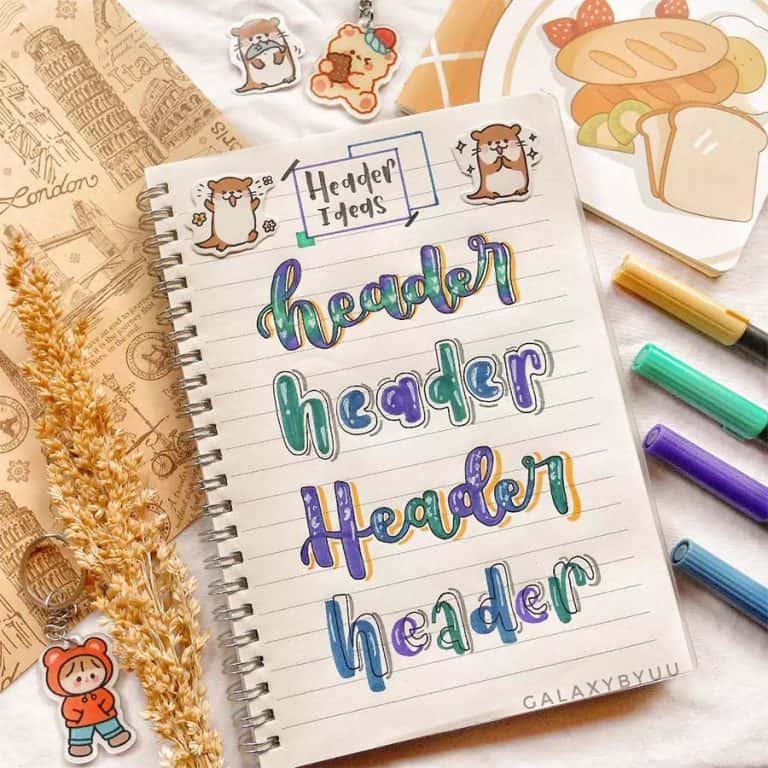 Header
Ideas
header
header
Header
header
GALAXYBYUU
London